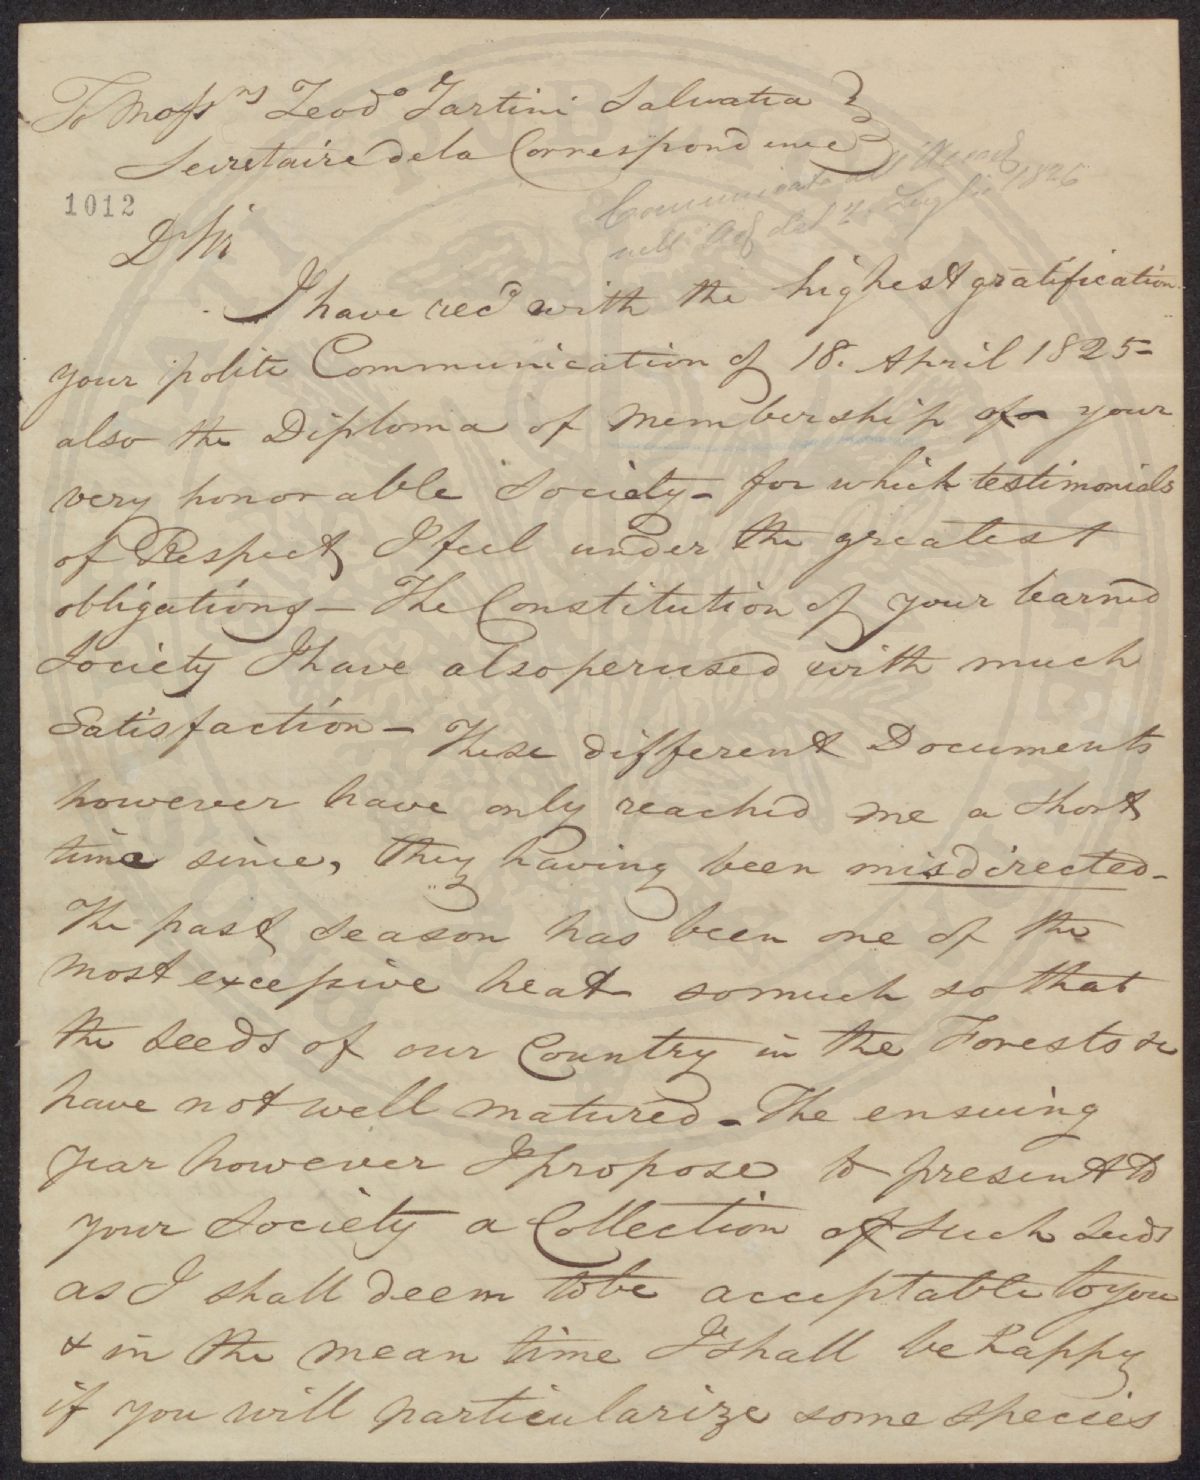 To Messrs Teodo Tartini Salvatia
Secretaire de la Correspondence
Communicata all'
nell' del 2. Luglio 1826
1012
D Sir
I have recd with the highest gratification
your polite Communication of 18. April 1825-
also the Diploma of Membership of your
very honorable Society - for which testimonials
of Respect I feel under the greatest
obligations - The Constitution of your learned
Society I have also perused with much
Satisfaction - These different Documents
however have only reached me a short
time since, they having been misdirected -
The past Season has been one of the
most excessive heat so much so that
the Seeds of our Country in the Forests &c
have not well matured - The ensuing
year however I propose to present to
your Society a Collection of such seeds
as I shall deem to be acceptable to you
& in the mean time I shall be happy
if you will particularize some species